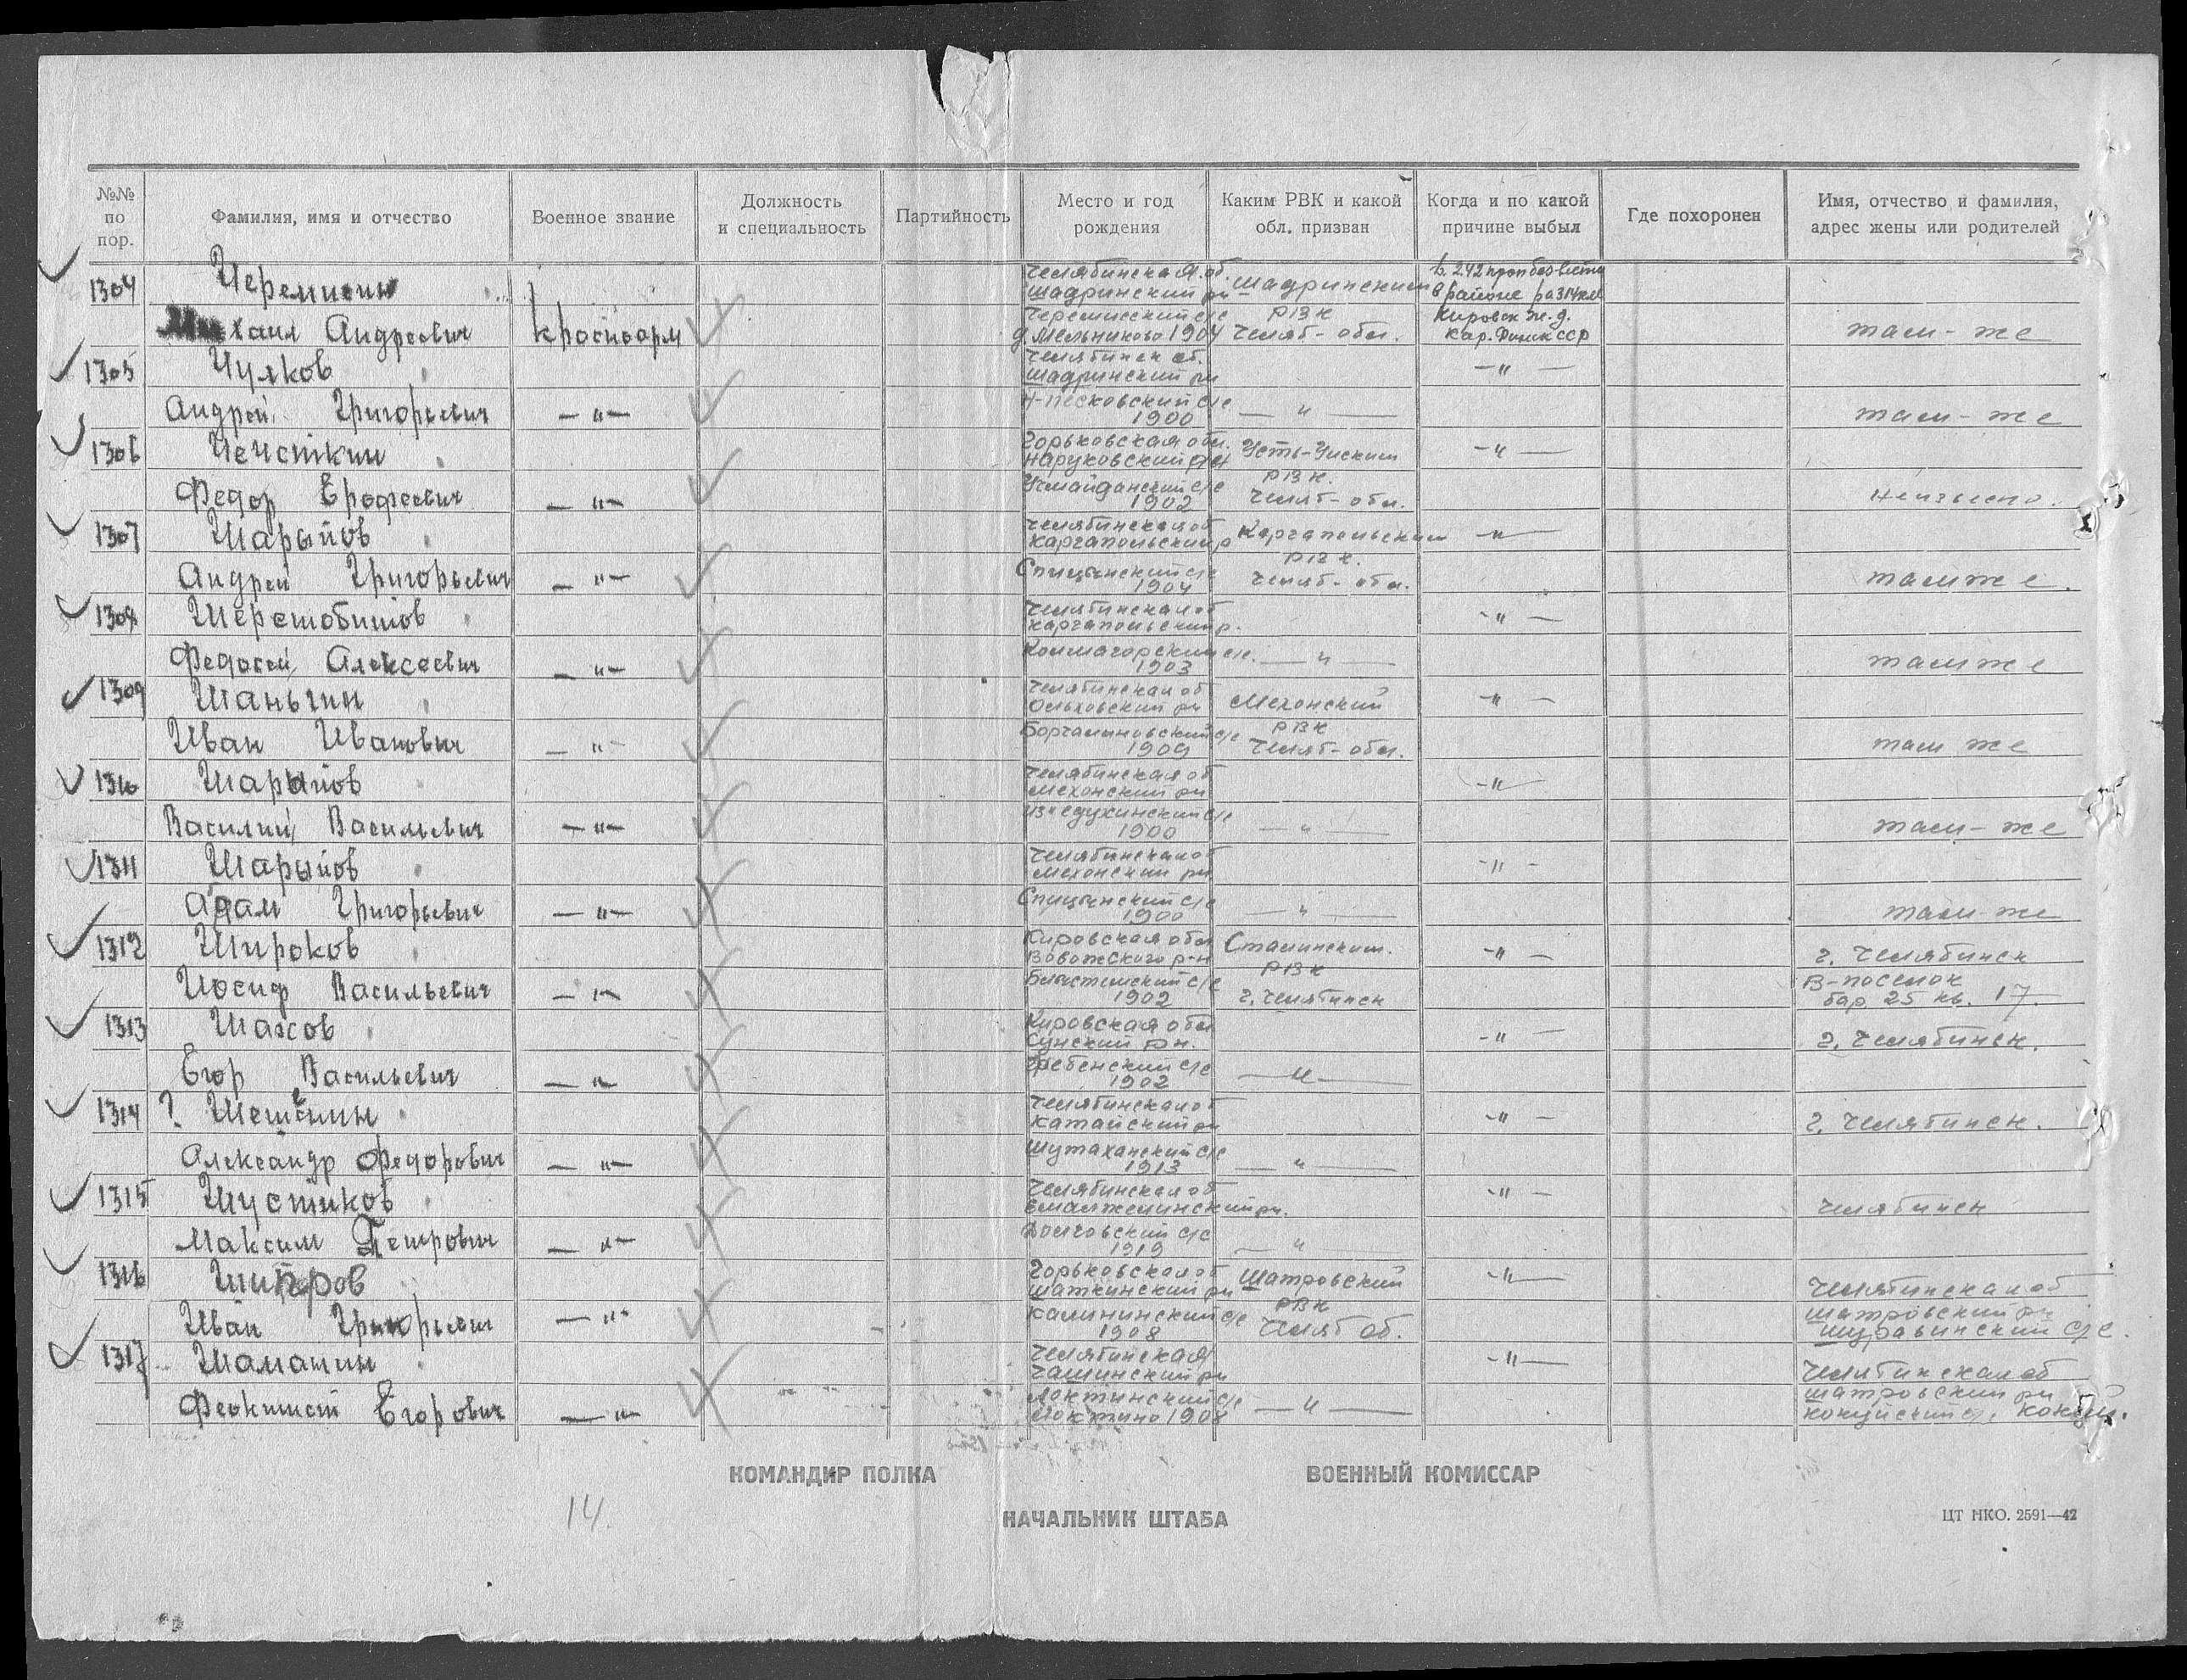 №№ по пор.
Фамилия, имя и отчество
Военное звание
Должность и специальность
Партийность
Место и год рождения
Каким РВК и какой обл. призван
Когда и по какой причине выбыл
Где похоронен
Имя, отчество и фамилия, адрес жены или родителей
1304 Черемисин Челябинская об. Шадринский рн Шадринским в районе
Михаил Андреевич красноарм д. Мельниково 1904 РВК Челяб-обл. Кировск ж.д. Кар.Финск ССР там-же
1305 Чулков Челябинск об. Шадринский рн -"-
Андрей Григорьевич -"- Н-Песковский с/с 1900 -"- там-же
1306 Горьковская обл. Наруковский рн Усть-Уйским -"-
Федор Ерофеевич -"- 1902 РВК. Челяб-обл. неизвесно.
1307 Шарыпов Челябинская об Каргапольский р Каргапольским -"-
Андрей Григорьевич -"- Спицынский с/с 1904 РВК. Челяб-обл. там же.
1308 Шерстобитов Челябинская об Каргапольский р. -"-
Федосей Алексеевич -"- 1903 -"- там же
1309 Шаньгин Челябинская об Ольховский рн Мехонский -"-
Иван Иванович -"- 1909 РВК Челяб-обл. там же
1310 Шарыпов Челябинская об Мехонский рн -"-
Василий Васильевич -"- 1900 -"- там-же
1311 Шарыпов Челябинская об Мехонский рн -"-
Адам Григорьевич -"- Спицынский с/с 1900 -"- там-же
1312 Широков Кировская обл Сталинским. -"- г. Челябинск
Иосиф Васильевич -"- 1902 РВК г. Челябинск В-поселок бар. 25 кв. 17
1313 Шахов Кировская обл Сунский рн. -"- г. Челябинск.
Егор Васильевич -"- 1902 -"-
1314 ? Челябинская об Катайский рн -"- г. Челябинск.
Александр Федорович -"- Шутаханский с/с 1913 -"-
1315 Шустиков Челябинская об -"- Челябинск
Максим Петрович -"- Долговский с/с 1919 -"-
1316 Горьковская об Шаткинский рн Шатровский -"- Челябинская об
Иван Григорьевич -"- Калининский с/с 1908 РВК Челяб об. Шатровский рн с/с.
1317 Шамашин Челябинская Чашинский рн -"- Челябинская об
Феоктист Егорович -"- Локтинский с/с Локтино 1908 -"- Шатровский рн
КОМАНДИР ПОЛКА
ВОЕННЫЙ КОМИССАР
14.
НАЧАЛЬНИК ШТАБА
ЦТ НКО. 2591—42